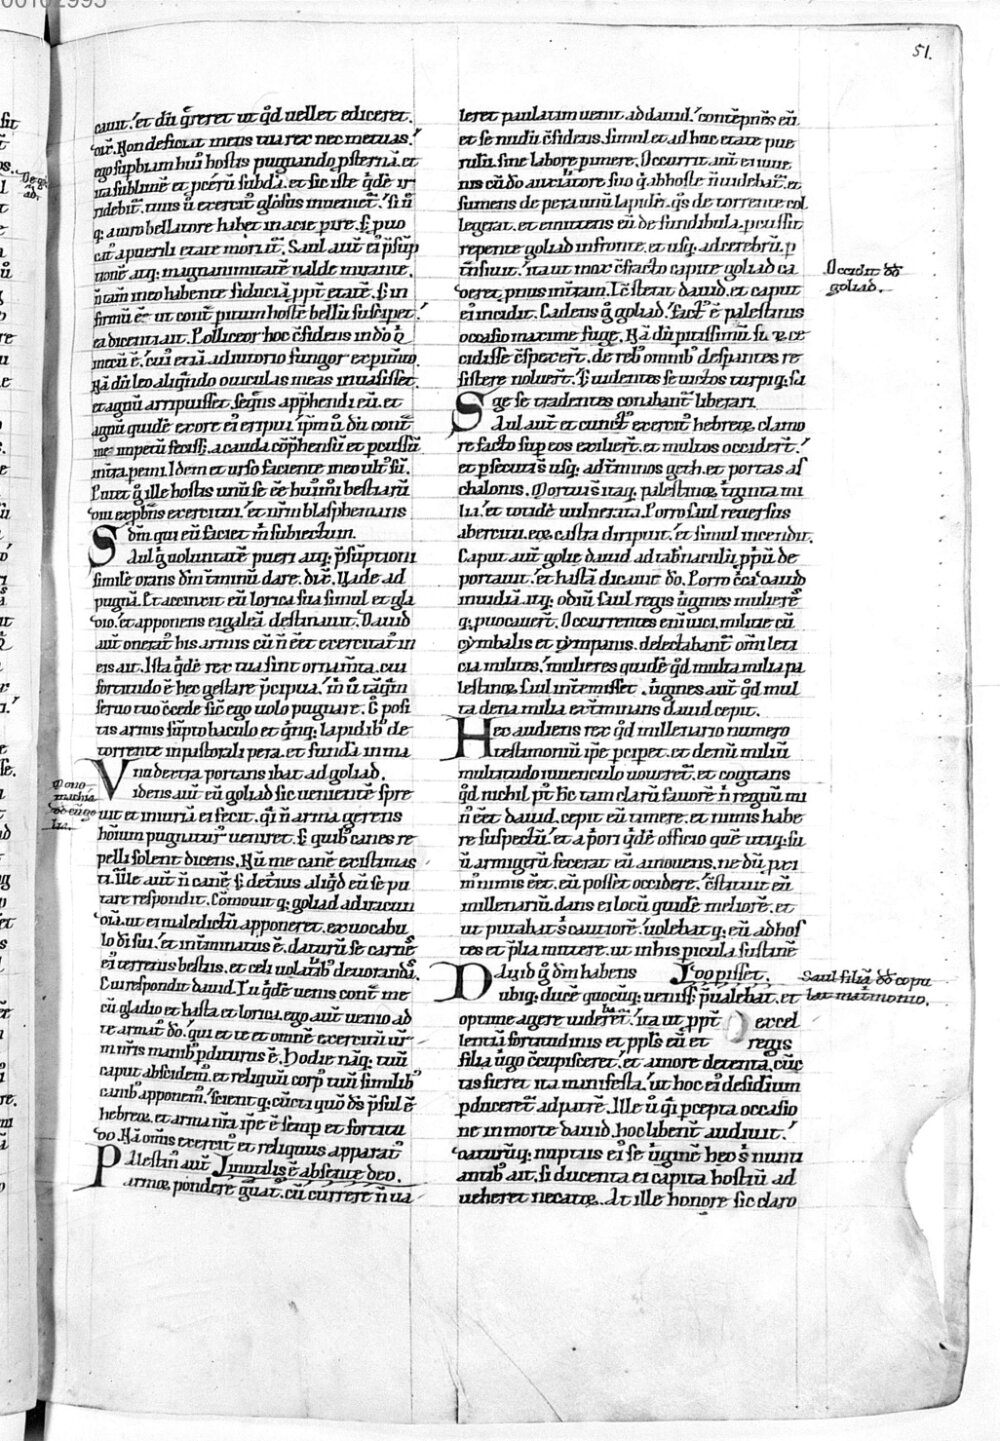 51.
cauit. et dū q̄reret ut qd́ uellet ediceret.
dix̄. Non deficiat mens tua rex nec metuas.
ego supbiam hui' hostis pugnando p̄sternā. et
ita sublimē et p̄cerū subdā. et sic iste qdē ir
ridebit̄. tuus ū exercit' glosus inueniet̄. si n̄
q; a uiro bellatore habet in acie pire. s; puo
cat̄ a puerili etate mori uit̄. Saul aut̄ ei' p̄sūp
tionē atq; magnanimitatē ualde mirante.
n̄ tam̄ in eo habente fiduciā ppt̄ etatē. s; in
firmū eē ut cont̄ pitum hostē bellū suscipet.
ea dicenti ait. Polliceor hoc cfidens in dō q̄
mecū ē. cui' etiā adiutorio fungor exptimo.
Nā dū leo aliqn̄do ouiculas meas inuasisset.
et agnū arripuisset. seq̄ns app̄hendi eū. et
agnū quidē ex ore ei' eripui. ip̄m ū dū cont̄
me impetū fecisset. a cauda cōp̄hensū et pcussū
in tra pemi. Idem et urso faciente me ult' sū.
Putet q̄ ille hostis unū se eē hui'mi bestiarū
qui exp̄bans exercitui. et nr̄m blasphemans
dm̄ qui eū faciet m̄ subiectum.
Saul q̄ uoluntatē pueri atq; p̄sūptioni
similē orans dm̄ t̄minū dare. dix̄. Uade ad
pugnā. Et accinxit eū lorica sua simul et gla
dio. et apponens ei galeā destinauit. Dauid
aut̄ onerat' his armis cū n̄ eēt exercitat' in
eis ait. Ista qdē rex tua sint ornam̄ta. cui
fortitudo ē hec gestare p̄cipua. m̄ ū tāq̄m
seruo tuo c̄cede sic' ego uolo pugnare. Et posi
tis armis sūpto baculo et qnq; lapidib' de
torrente in pastorali pera. et funda in ma
nu dextra portans ibat ad goliad.
Dono
machia
dd̄ cū go
lia.
Videns aut̄ eū goliad sic uenientē spre
uit et iniuriā ei fecit. qi n̄ arma gerens
hōium pugnatur' ueniret. s; quib' canes re
pelli solent dicens. Nū me canē existimas
ti. Ille aut̄ n̄ canē s; det̄ius aliqd́ eū se pu
tare respondit. Cōmouit q; goliad ad iracun
diā. ut ei maledictū apponeret. ex uocabu
lo di sui. et int̄minatus ē. daturū se carnes
ei' terrenis bestiis. et celi uolatilib' deuorandā.
Cui respondit dauid. Tu qdē uenis cont̄ me
cū gladio et hasta et lorica. ego aut̄ uenio ad
te armat' dō. qui et te et omnē exercitū ur̄
m nris manib' pditurus ē. Hodie naq; tuū
caput abscidem. et reliquū corp' tuū similib'
canib' apponem. scient q; cūcti quō ds̄ p̄sul ē
hebreę. et arma nr̄a ip̄e ē semp et fortitu
do. Nā om̄is exercit' et reliquus apparat'
inutilis ē absente deo.
Palestin' aut̄
armoꝝ pondere ḡuat'. cū currere n̄ ua
leret paulatim uenit ad dauid. contēpnēs eū
et se nudū c̄fidens. simul et ad huc etate pue
rulū. sine labore pimere. Occurrit aut̄ ei iuue
nis cū dō auxiliatore suo q̄ ab hoste n̄ uidebat̄. et
sumens de pera unū lapidē. q̄s de torrente col
legerat. et emittens eū de fundibula. pcussit
repente goliad in fronte. et usq; ad cerebrū p
t̄nsiuit. ita ut mox c̄facto capite goliad ca
deret pnus in t̄ram. Tc̄ stetit dauid. et caput
Occidit dd̄
goliad.
ei' incidit. Cadens q̄ goliad. fact' ē palestinis
occasio maxime fugę. Nā dū p̄tissimū suoꝝ ce
cidisse c̄spexert̄. de reb' omnib' despantes re
sistere noluert̄. s; uidentes se uictos turpiq; fu
ge se tradentes conabant̄ liberari.
Saul aut̄ et cunct' exercit' hebreoꝝ clamo
re facto sup eos exiliert̄. et multos occidert̄.
et psecuti s̄ usq; ad t̄minos geth. et portas as
chalonis. Mortui s̄ itaq; palestinoꝝ t̄ginta mi
lia. et totidē uulnerata. Porro saul reuersus
abercitu. eoꝝ castra diripuit. et simul incendit.
Caput aut̄ golie dauid ad tab̄naculū p̄p̄ū de
portauit. et hastā dicauit dō. Porro c̄ca dauid
inuidiā atq; odiū saul regis u̇gines mulieres
q; puocauert̄. Occurrentes eni uictici militie cū
cymbalis et tȳmpanis. delectabant̄ om̄i leti
cia milites. mulieres quidē qd́ multa milia pa
lestinoꝝ saul int̄emisset. u̇gines aut̄ qd́ mul
ta dena milia ext̄minans dauid cepit.
Hec audiens rex qd́ millenario numero
testimoniū ip̄e pcipet. et denū miliū
multitudo iuuenculo uoueret̄. et cogitans
qd́ nichil p̄t h̄c tam clarū fauorē n̄ regnū mi
n̄ eēt dauid. cepit eū timere. et nimis habe
re suspectū. et a p̄ori qdē officio quē utiq; su
ū armigerū fecerat eū amouens. ne dū pxi
m' nimis eēt. eū posset occidere. c̄stituit eū
millenariū. dans ei locū quidē meliorē. et
ut putabat s; cautiorē. uolebat q; eū ad hos
tes et p̄lia mittere. ut in his picula sustinē
ret. oppisset.
Saul filiā dd̄ copu
lat mat̄monio.
Dauid q̄ dm̄ habens
ubiq; ducē quocūq; ueniss; p̄ualebat. et
optime agere uideret̄. ita ut ppt̄ excel
lentiā fortitudinis et ppl̄s eū et regis
filia u̇go c̄cupisceret. et amore detenta. cūc
tis fieret ita manifesta. ut hoc ei' desidium
pduceret̄ ad patrē. Ille ū q̄i pcepta occasio
ne in morte dauid. hoc libent̄ audiuit.
daturūq; nuptus ei se u̇ginē heo s̄ nunti
antib' ait. si ducenta ei capita hostiū ad
ueheret necatoꝝ. At ille honore sic claro